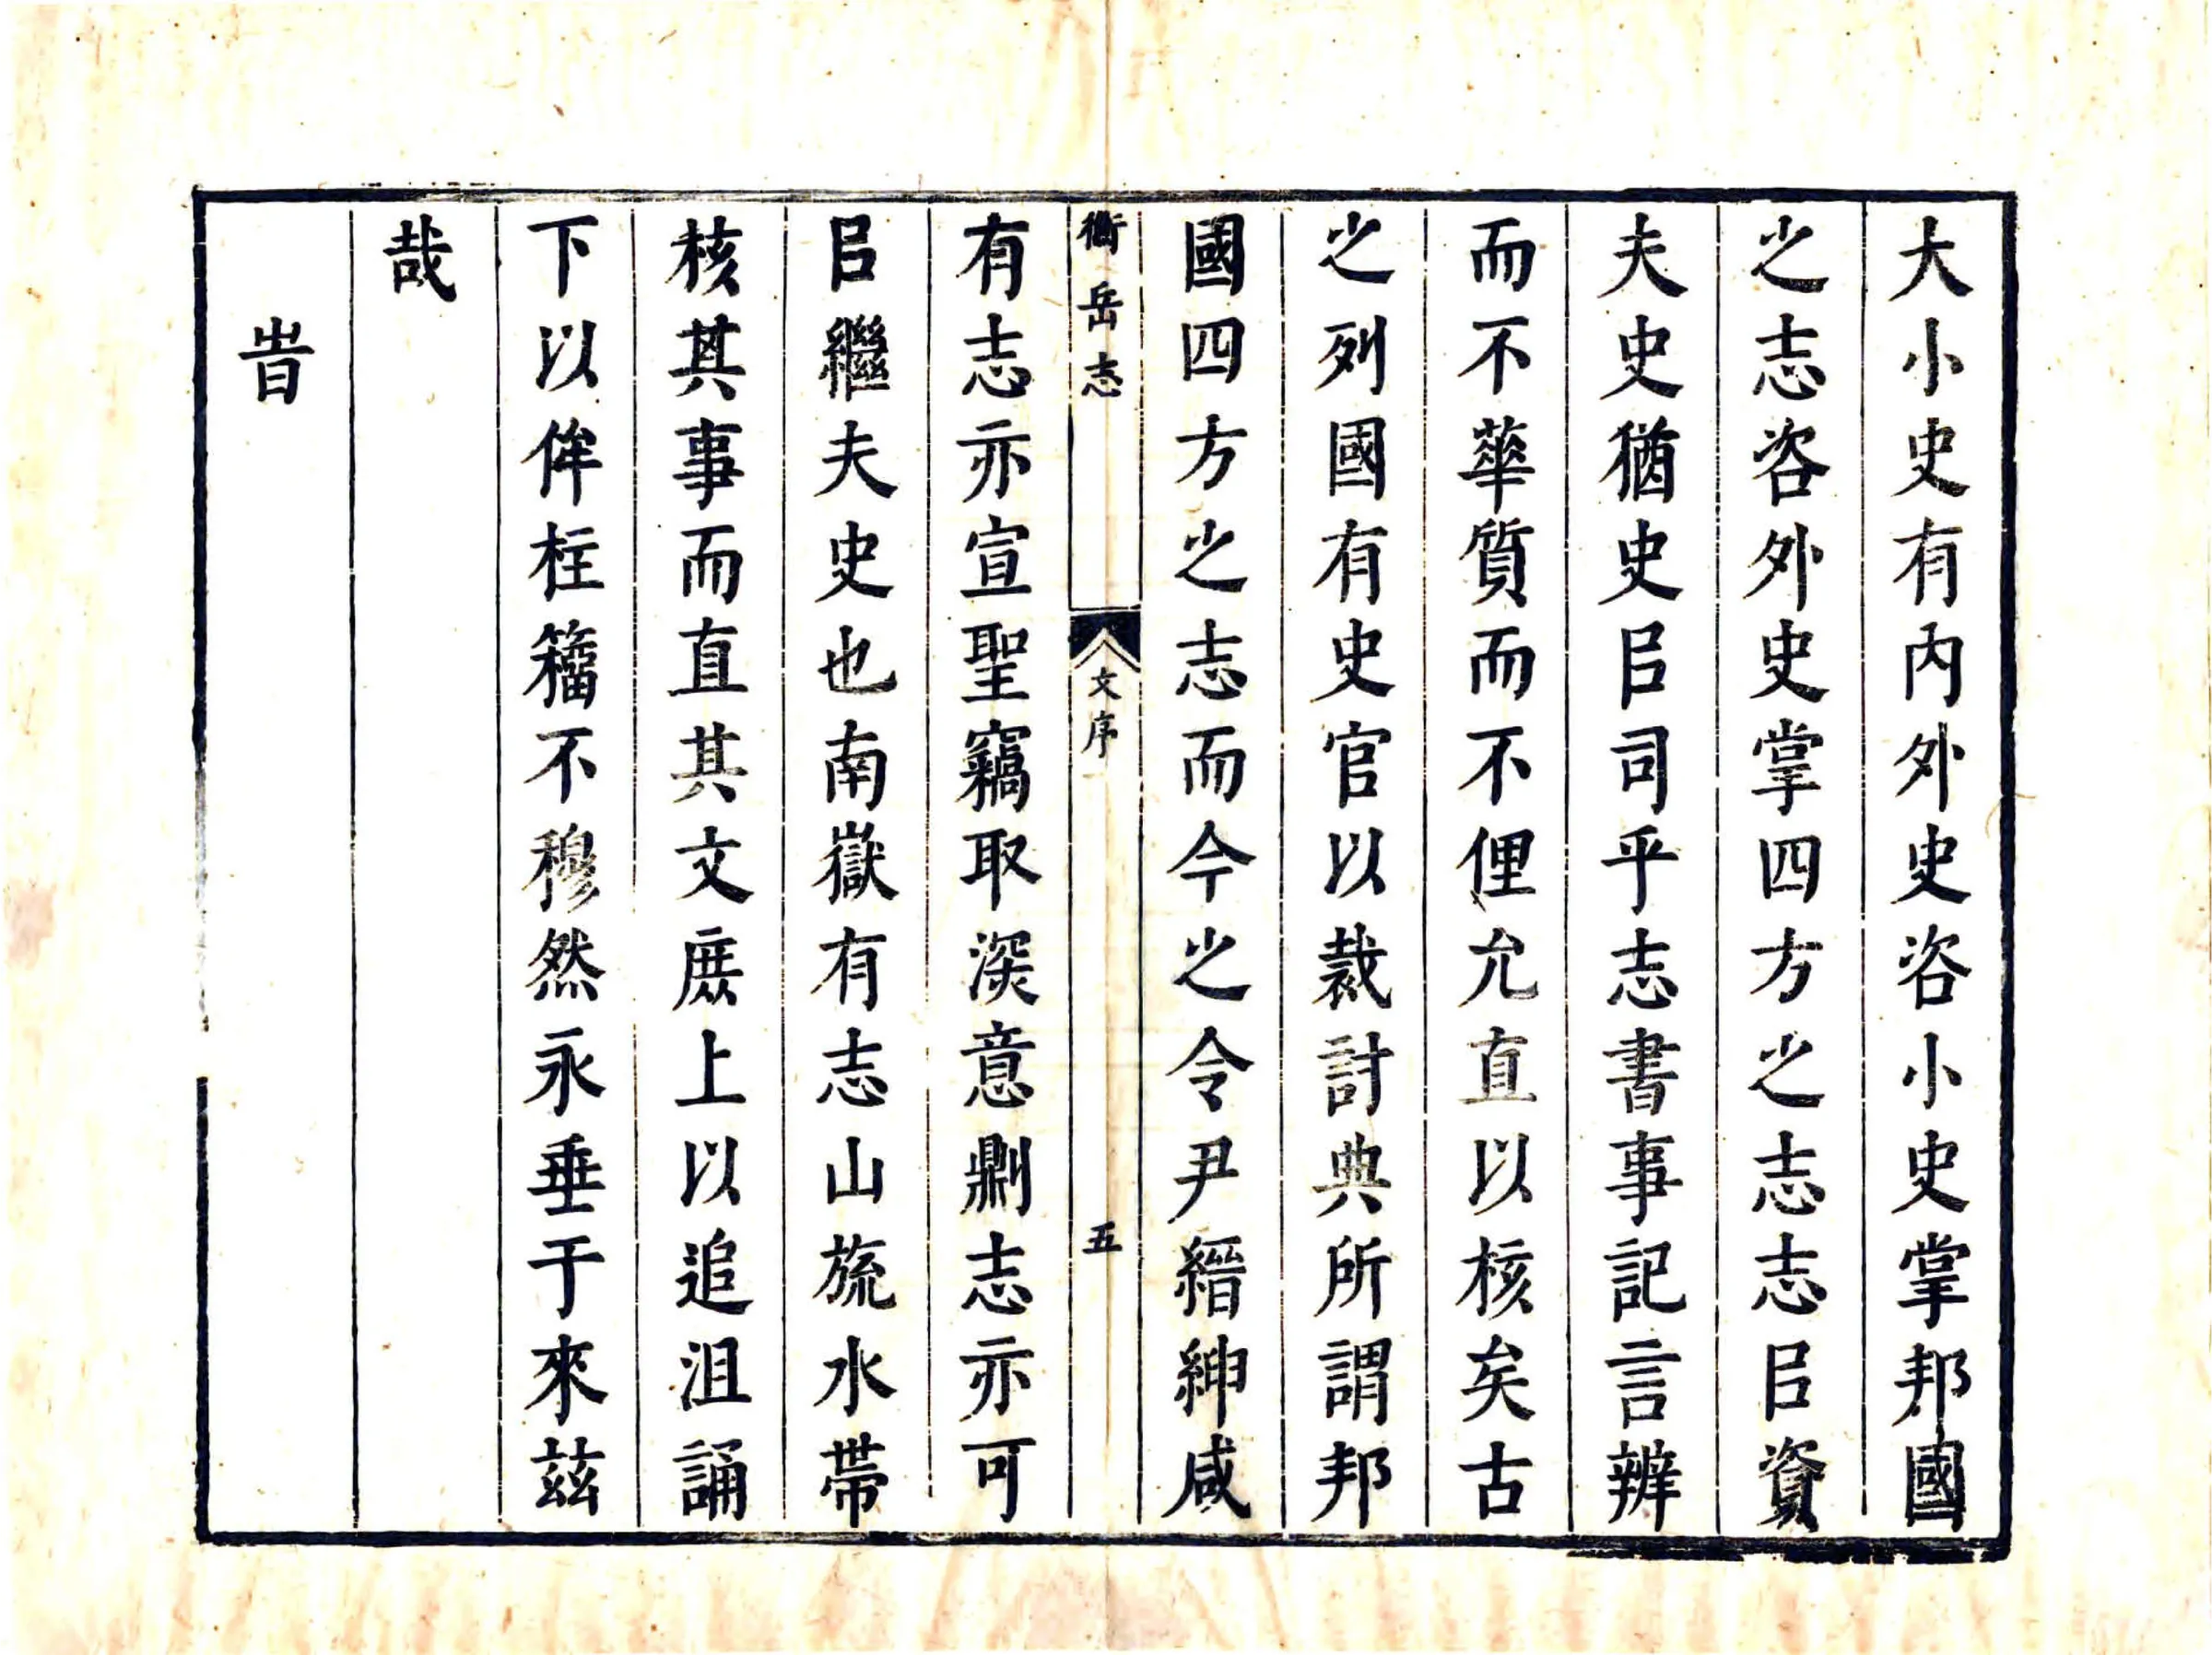 大小史有内外史咨小史掌邦國
之志咨外史掌四方之志志㠯資
夫史猶史㠯司乎志書事記言辨
而不華質而不俚允直以核矣古
之列國有史官以裁討典所謂邦
國四方之志而今之令尹縉紳咸
衡岳志 文序 五
有志亦宣聖竊取深意劘志亦可
㠯繼夫史也南嶽有志山旒水帶
核其事而直其文庶上以追沮誦
下以侔柱籀不穆然永垂于來茲
哉
旹